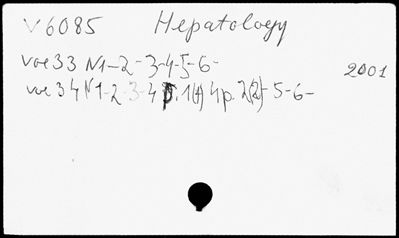 V6085 Hepatology
voe 33 N1-2-3-4-5-6- 2001
voe 34 N1-2-3-4 p.1(+) 4p.2(2)-5-6-